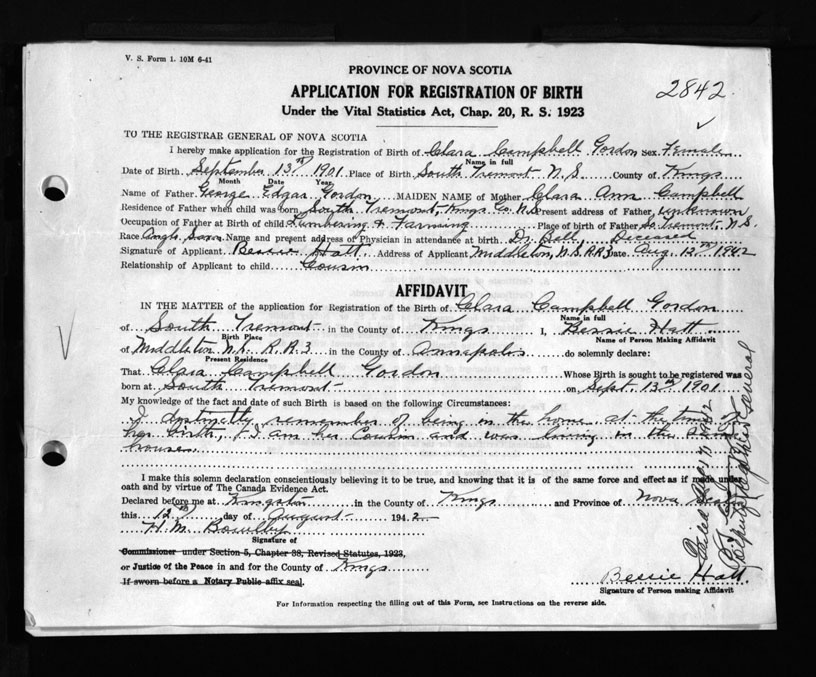 V. S. Form 1. 10M 6-41
PROVINCE OF NOVA SCOTIA
APPLICATION FOR REGISTRATION OF BIRTH
2842
Under the Vital Statistics Act, Chap. 20, R. S. 1923
TO THE REGISTRAR GENERAL OF NOVA SCOTIA
I hereby make application for the Registration of Birth of Clara Campbell Gordon Sex Female
Name in full
Date of Birth September 13th 1901 Place of Birth South Tremont N.S. County of Kings
Month Date Year
Name of Father George Edgar Gordon MAIDEN NAME of Mother Clara Ann Campbell
Residence of Father when child was born South Tremont, Kings Co. N.S. Present address of Father, unknown
Occupation of Father at Birth of child Lumbering & Farming Place of birth of Father So. Tremont, N.S.
Race Anglo Saxon Name and present address of Physician in attendance at birth Dr. Ball, Deceased
Signature of Applicant Bessie Hatt Address of Applicant Middleton, N.S. R.R.3 Date Aug. 12th 1942
Relationship of Applicant to child Cousin
AFFIDAVIT
IN THE MATTER of the application for Registration of the Birth of Clara Campbell Gordon
Name in full
of South Tremont in the County of Kings I, Bessie Hatt
Birth Place Name of Person Making Affidavit
of Middleton N.S. R.R.3 in the County of Annapolis do solemnly declare:
Present Residence
That Clara Campbell Gordon Whose Birth is sought to be registered was
born at South Tremont on Sept. 13th 1901
My knowledge of the fact and date of such Birth is based on the following Circumstances:
I distinctly remember of being in the home at the time of
her birth, I am her Cousin and was living in the
house
I make this solemn declaration conscientiously believing it to be true, and knowing that it is of the same force and effect as if made under
oath and by virtue of The Canada Evidence Act.
Declared before me at Kingston in the County of Kings and Province of Nova Scotia
this 12th day of August 1942
H. M. Bowlby
Signature of
Commissioner under Section 5, Chapter 38, Revised Statutes, 1923,
or Justice of the Peace in and for the County of Kings
If sworn before a Notary Public affix seal.
Bessie Hatt
Signature of Person making Affidavit
For Information respecting the filling out of this Form, see Instructions on the reverse side.
Deputy Registrar General